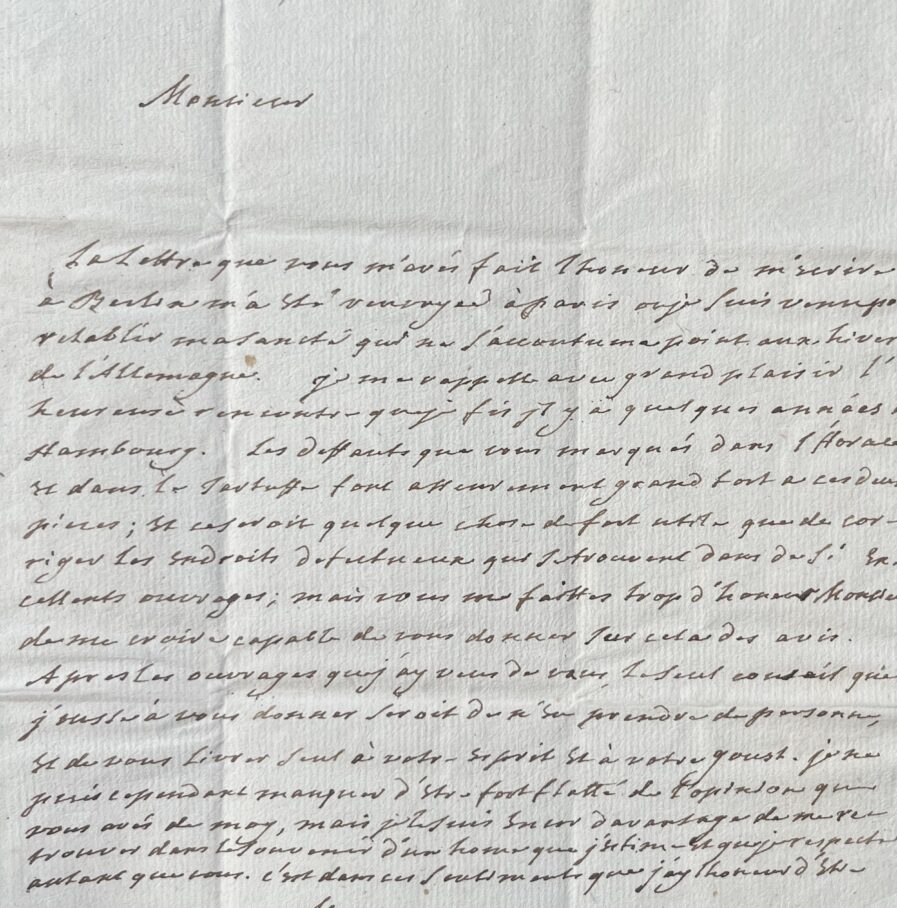 Monsieur
La Lettre que vous m'avés fait l'honeur de m'Ecrire
à Berlin m'a Eté renvoyée à paris ou je suis venu po
retablir ma santé qui ne s'accoutume point aux hiver
de l'Allemagne. je me rappelle avec grand plaisir l'
heureuse rencontre que je fis jl y a quelques années
Hambourg. Les deffauts que vous marqués dans l'Horace
Et dans le Tartuffe font asseurement grand tort a ces deux
pieces; Et ce seroit quelque chose de fort utile que de cor-
riger les Endroits defectueux qui se trouvent dans de si Ex
cellents ouvrages; mais vous me faittes trop d'honeur Monsie
de me croire capable de vous donner sur cela des avis.
Apres les ouvrages que j'ay veus de vous, le seul conseil que
j'eusse à vous donner seroit de n'En prendre de personne,
Et de vous Livrer seul à votre Esprit Et à votre goust. je ne
puis cependant manquer d'Etre fort flatté de l'opinion que
vous avés de moy, mais je le suis Encor davantage de me re
trouver dans le souvenir d'un home que j'estime Et que je respecte
autant que vous. c'est dans ces sentiments que j'ay l'honeur d'Etre